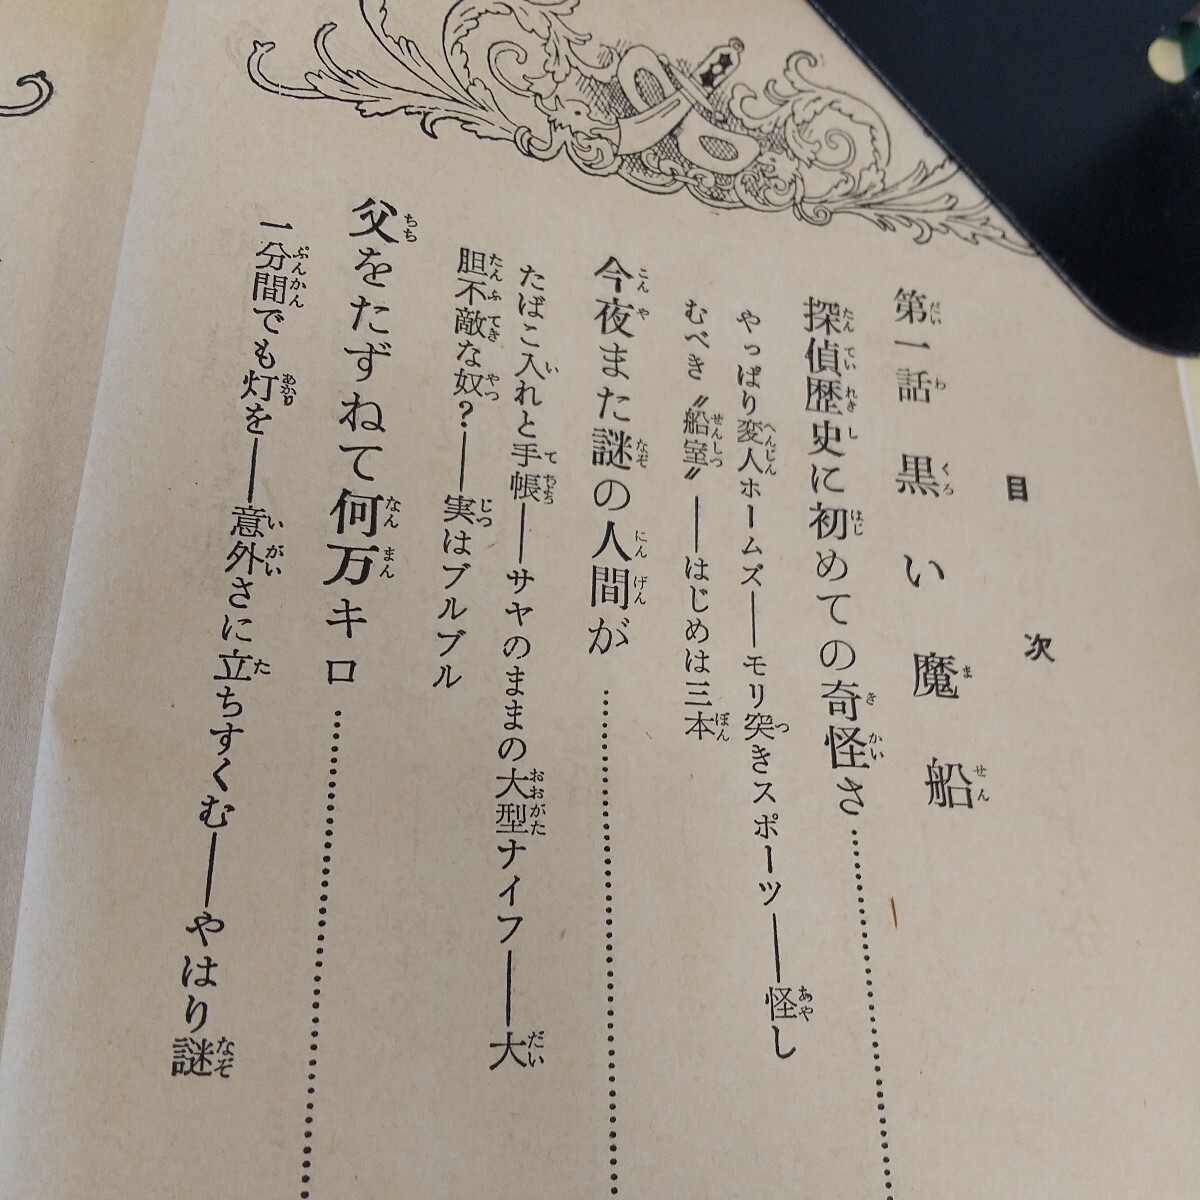 目次
第一話 黒い魔船
探偵歴史に初めての奇怪さ
やっぱり変人ホームズ――モリ突きスポーツ――怪し
むべき〝船室〟――はじめは三本
今夜また謎の人間が
たばこ入れと手帳――サヤのままの大型ナイフ――大
胆不敵な奴？――実はブルブル
父をたずねて何万キロ
一分間でも灯を――意外さに立ちすくむ――やはり謎